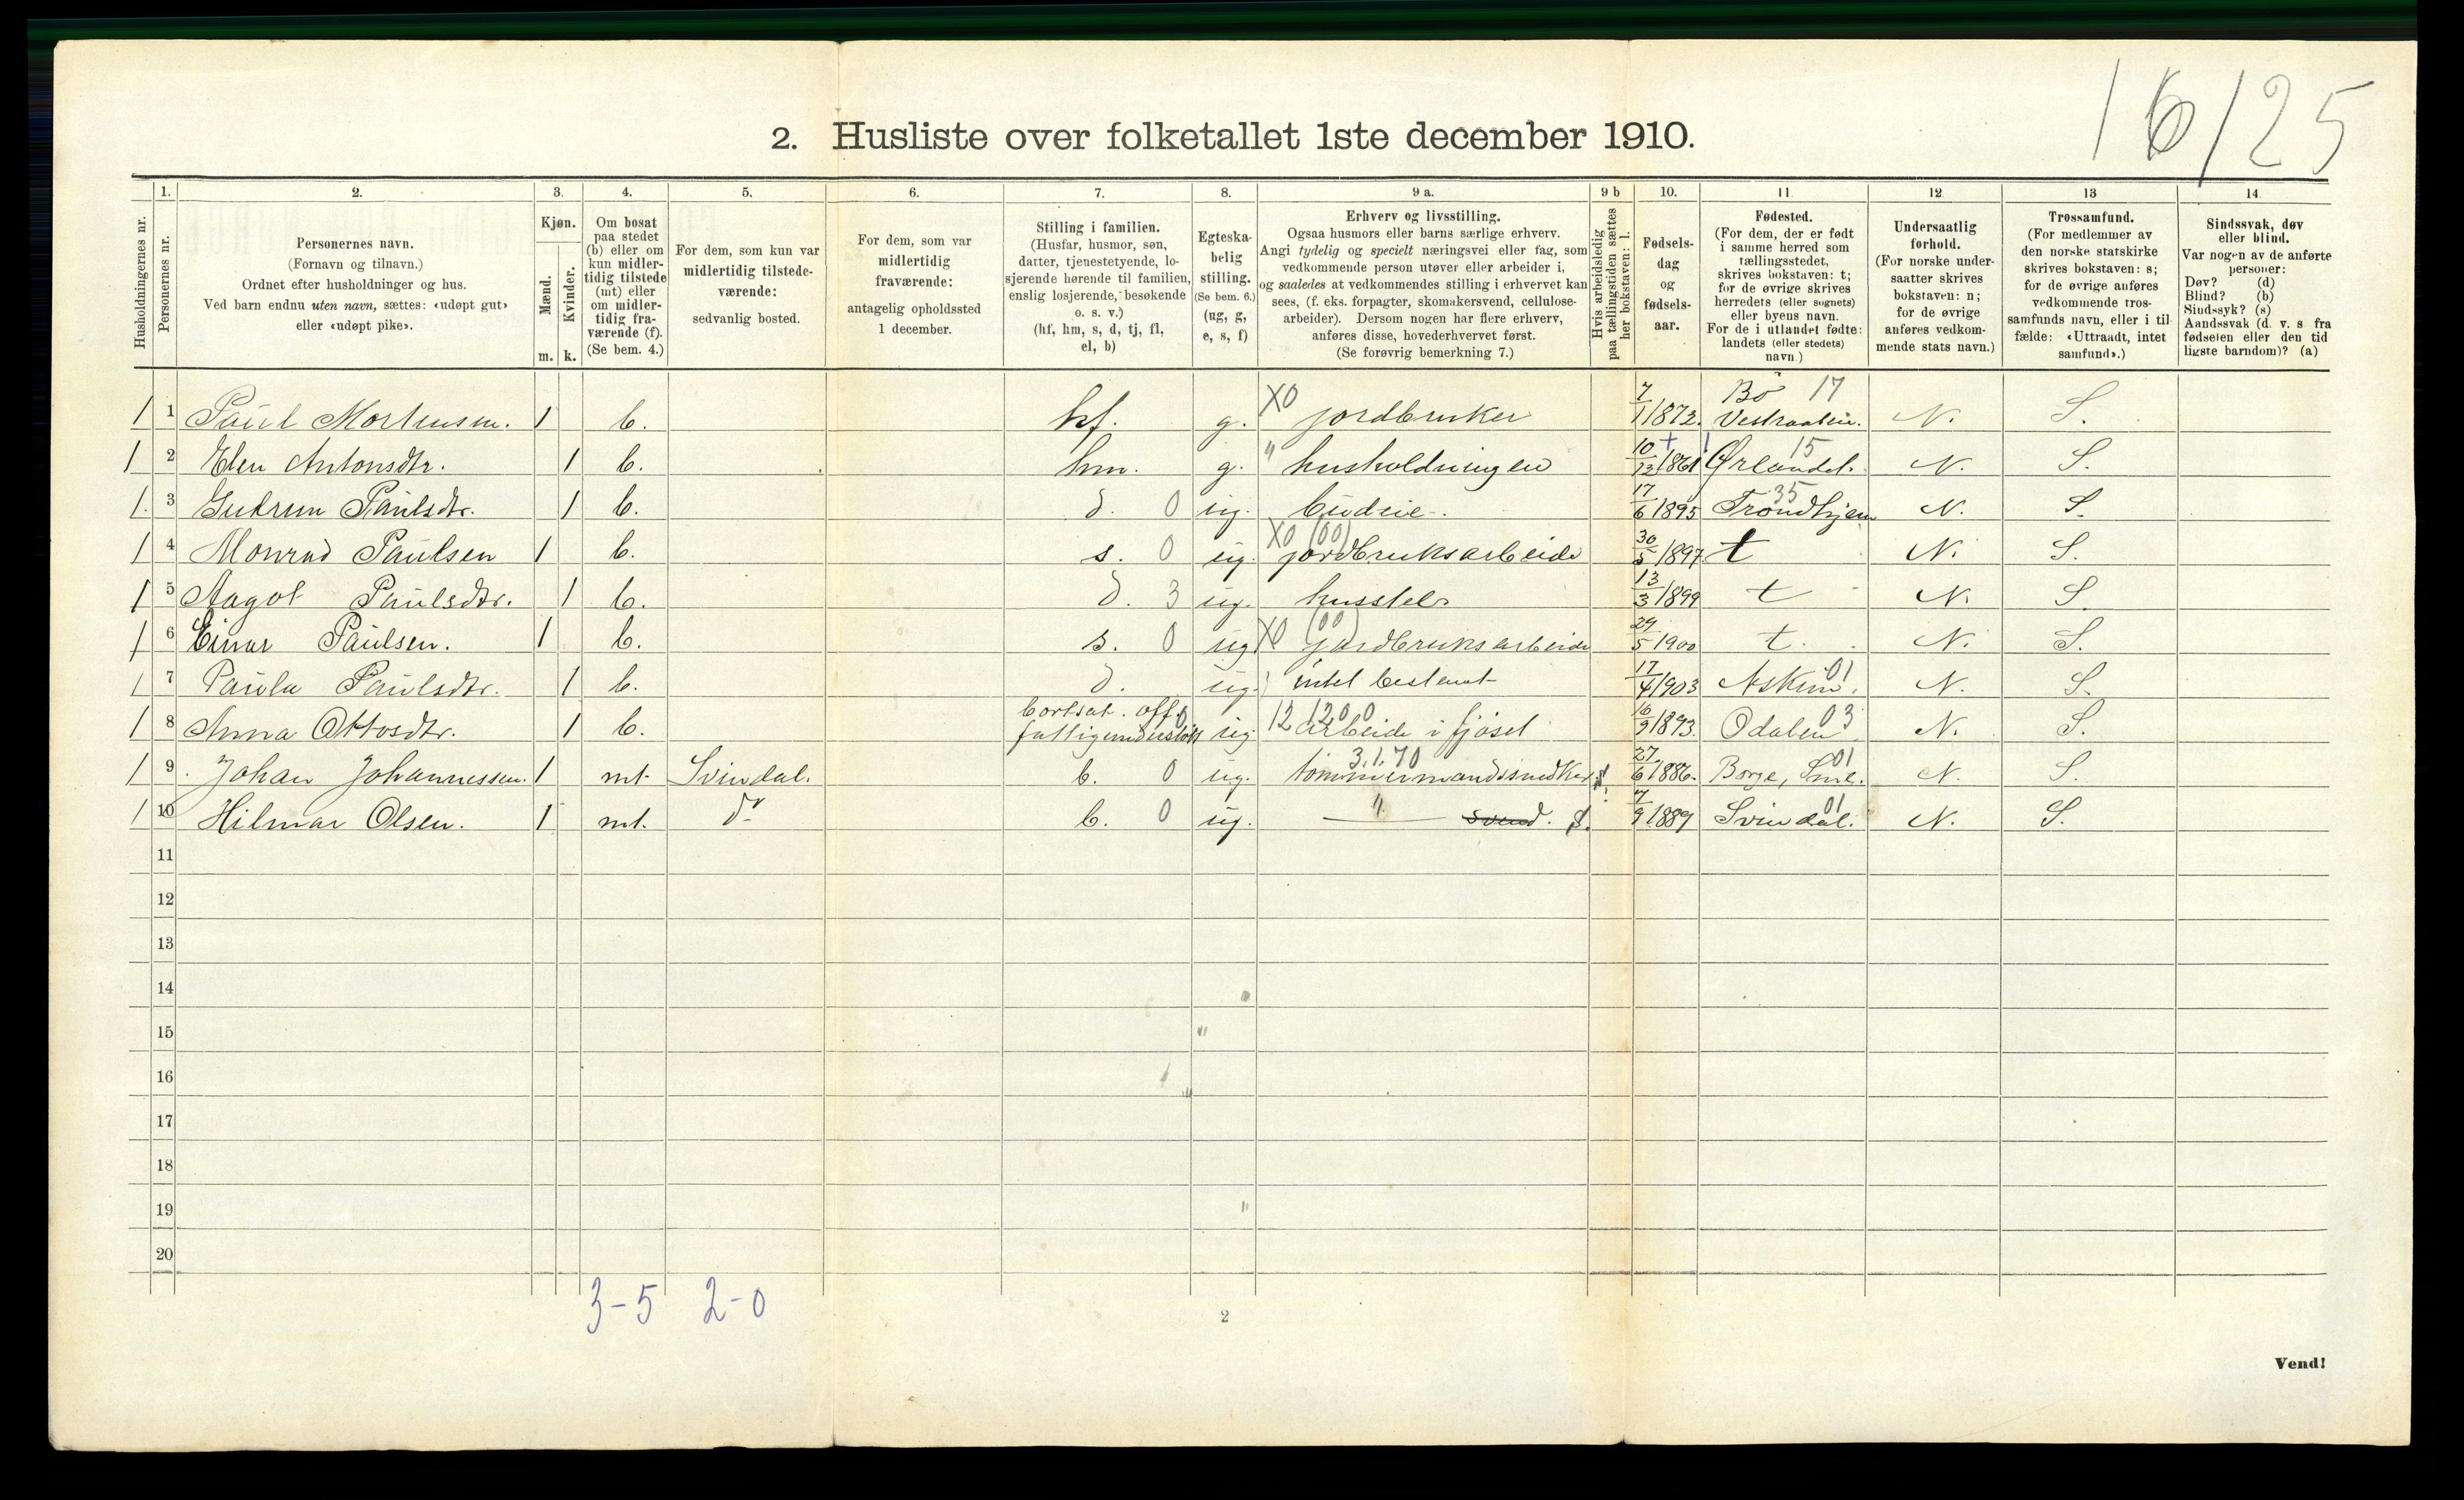 16/25
2. Husliste over folketallet 1ste december 1910.
1. 2. 3. 4. 5. 6. 7. 8. 9 a. 9 b 10. 11 12 13 14
Husholdningernes nr.
Personernes nr.
Personernes navn.
(Fornavn og tilnavn.)
Ordnet efter husholdninger og hus.
Ved barn endnu uten navn, sættes: «udøpt gut»
eller «udøpt pike».
Kjøn.
Mænd.
Kvinder.
m. k.
Om bosat
paa stedet
(b) eller om
kun midler-
tidig tilstede
(mt) eller
om midler-
tidig fra-
værende (f).
(Se bem. 4.)
For dem, som kun var
midlertidig tilstede-
værende:
sedvanlig bosted.
For dem, som var
midlertidig
fraværende:
antagelig opholdssted
1 december.
Stilling i familien.
(Husfar, husmor, søn,
datter, tjenestetyende, lo-
sjerende hørende til familien,
enslig losjerende, besøkende
o. s. v.)
(hf, hm, s, d, tj, fl,
el, b)
Egteska-
belig
stilling.
(Se bem. 6.)
(ug, g,
e, s, f)
Erhverv og livsstilling.
Ogsaa husmors eller barns særlige erhverv.
Angi tydelig og specielt næringsvei eller fag, som
vedkommende person utøver eller arbeider i,
og saaledes at vedkommendes stilling i erhvervet kan
sees, (f. eks. forpagter, skomakersvend, cellulose-
arbeider). Dersom nogen har flere erhverv,
anføres disse, hovederhvervet først.
(Se forøvrig bemerkning 7.)
Hvis arbeidsledig
paa tællingstiden sættes
her bokstaven: l.
Fødsels-
dag
og
fødsels-
aar.
Fødested.
(For dem, der er født
i samme herred som
tællingsstedet,
skrives bokstaven: t;
for de øvrige skrives
herredets (eller sognets)
eller byens navn.
For de i utlandet fødte:
landets (eller stedets)
navn.)
Undersaatlig
forhold.
(For norske under-
saatter skrives
bokstaven: n;
for de øvrige
anføres vedkom-
mende stats navn.)
Trossamfund.
(For medlemmer av
den norske statskirke
skrives bokstaven: s;
for de øvrige anføres
vedkommende tros-
samfunds navn, eller i til-
fælde: «Uttraadt, intet
samfund».)
Sindssvak, døv
eller blind.
Var nogen av de anførte
personer:
Døv? (d)
Blind? (b)
Sindssyk? (s)
Aandssvak (d. v. s. fra
fødselen eller den tid
ligste barndom)? (a)
1 1 Paul Mortensen. 1 b. hf. g. X0 jordbruker 7/1 1872. Bö 17 Vestraalen. N. S.
1 2 Elen Antonsdtr. 1 b. hm. g. " husholdningen 10/12 1861 Ørlandet. 15 N. S.
1. 3 Gudrun Paulsdtr. 1 b. d. 0 ug. budeie. 17/6 1895 Trondhjem 35 N. S.
1 4 Monrad Paulsen 1 b. s. 0 ug. X0 (00) jordbruksarbeide 30/5 1897. t N. S.
1 5 Aagot Paulsdtr. 1 b. d. 3 ug. husstel 13/3 1899 t N. S.
1 6 Einar Paulsen. 1 b. s. 0 ug X0 (00) jordbruksarbeide 29/5 1900 t. N. S.
1 7 Paula Paulsdtr. 1 b. d. ug. intet bestemt 17/4 1903 Askim. 01 N. S.
1 8 Anna Ottosdtr. 1 b. bortsat. off. fattigunderstøt 0 ug. 12 1200 arbeide i fjøset 16/9 1893. Odalen 03 N. S.
1 9 Johan Johannessen. 1 mt Svindal. b. 0 ug. 3.1.70 tømmermandssnedker 27/6 1886. Borge, Sml. 01 N. S.
1 10 Hilmar Olsen. 1 mt. do b. 0 ug. " svend. 7/9 1889 Svindal. 01 N. S.
11
12
13
14
15
16
17
18
19
20
3-5 2-0
2
Vend!